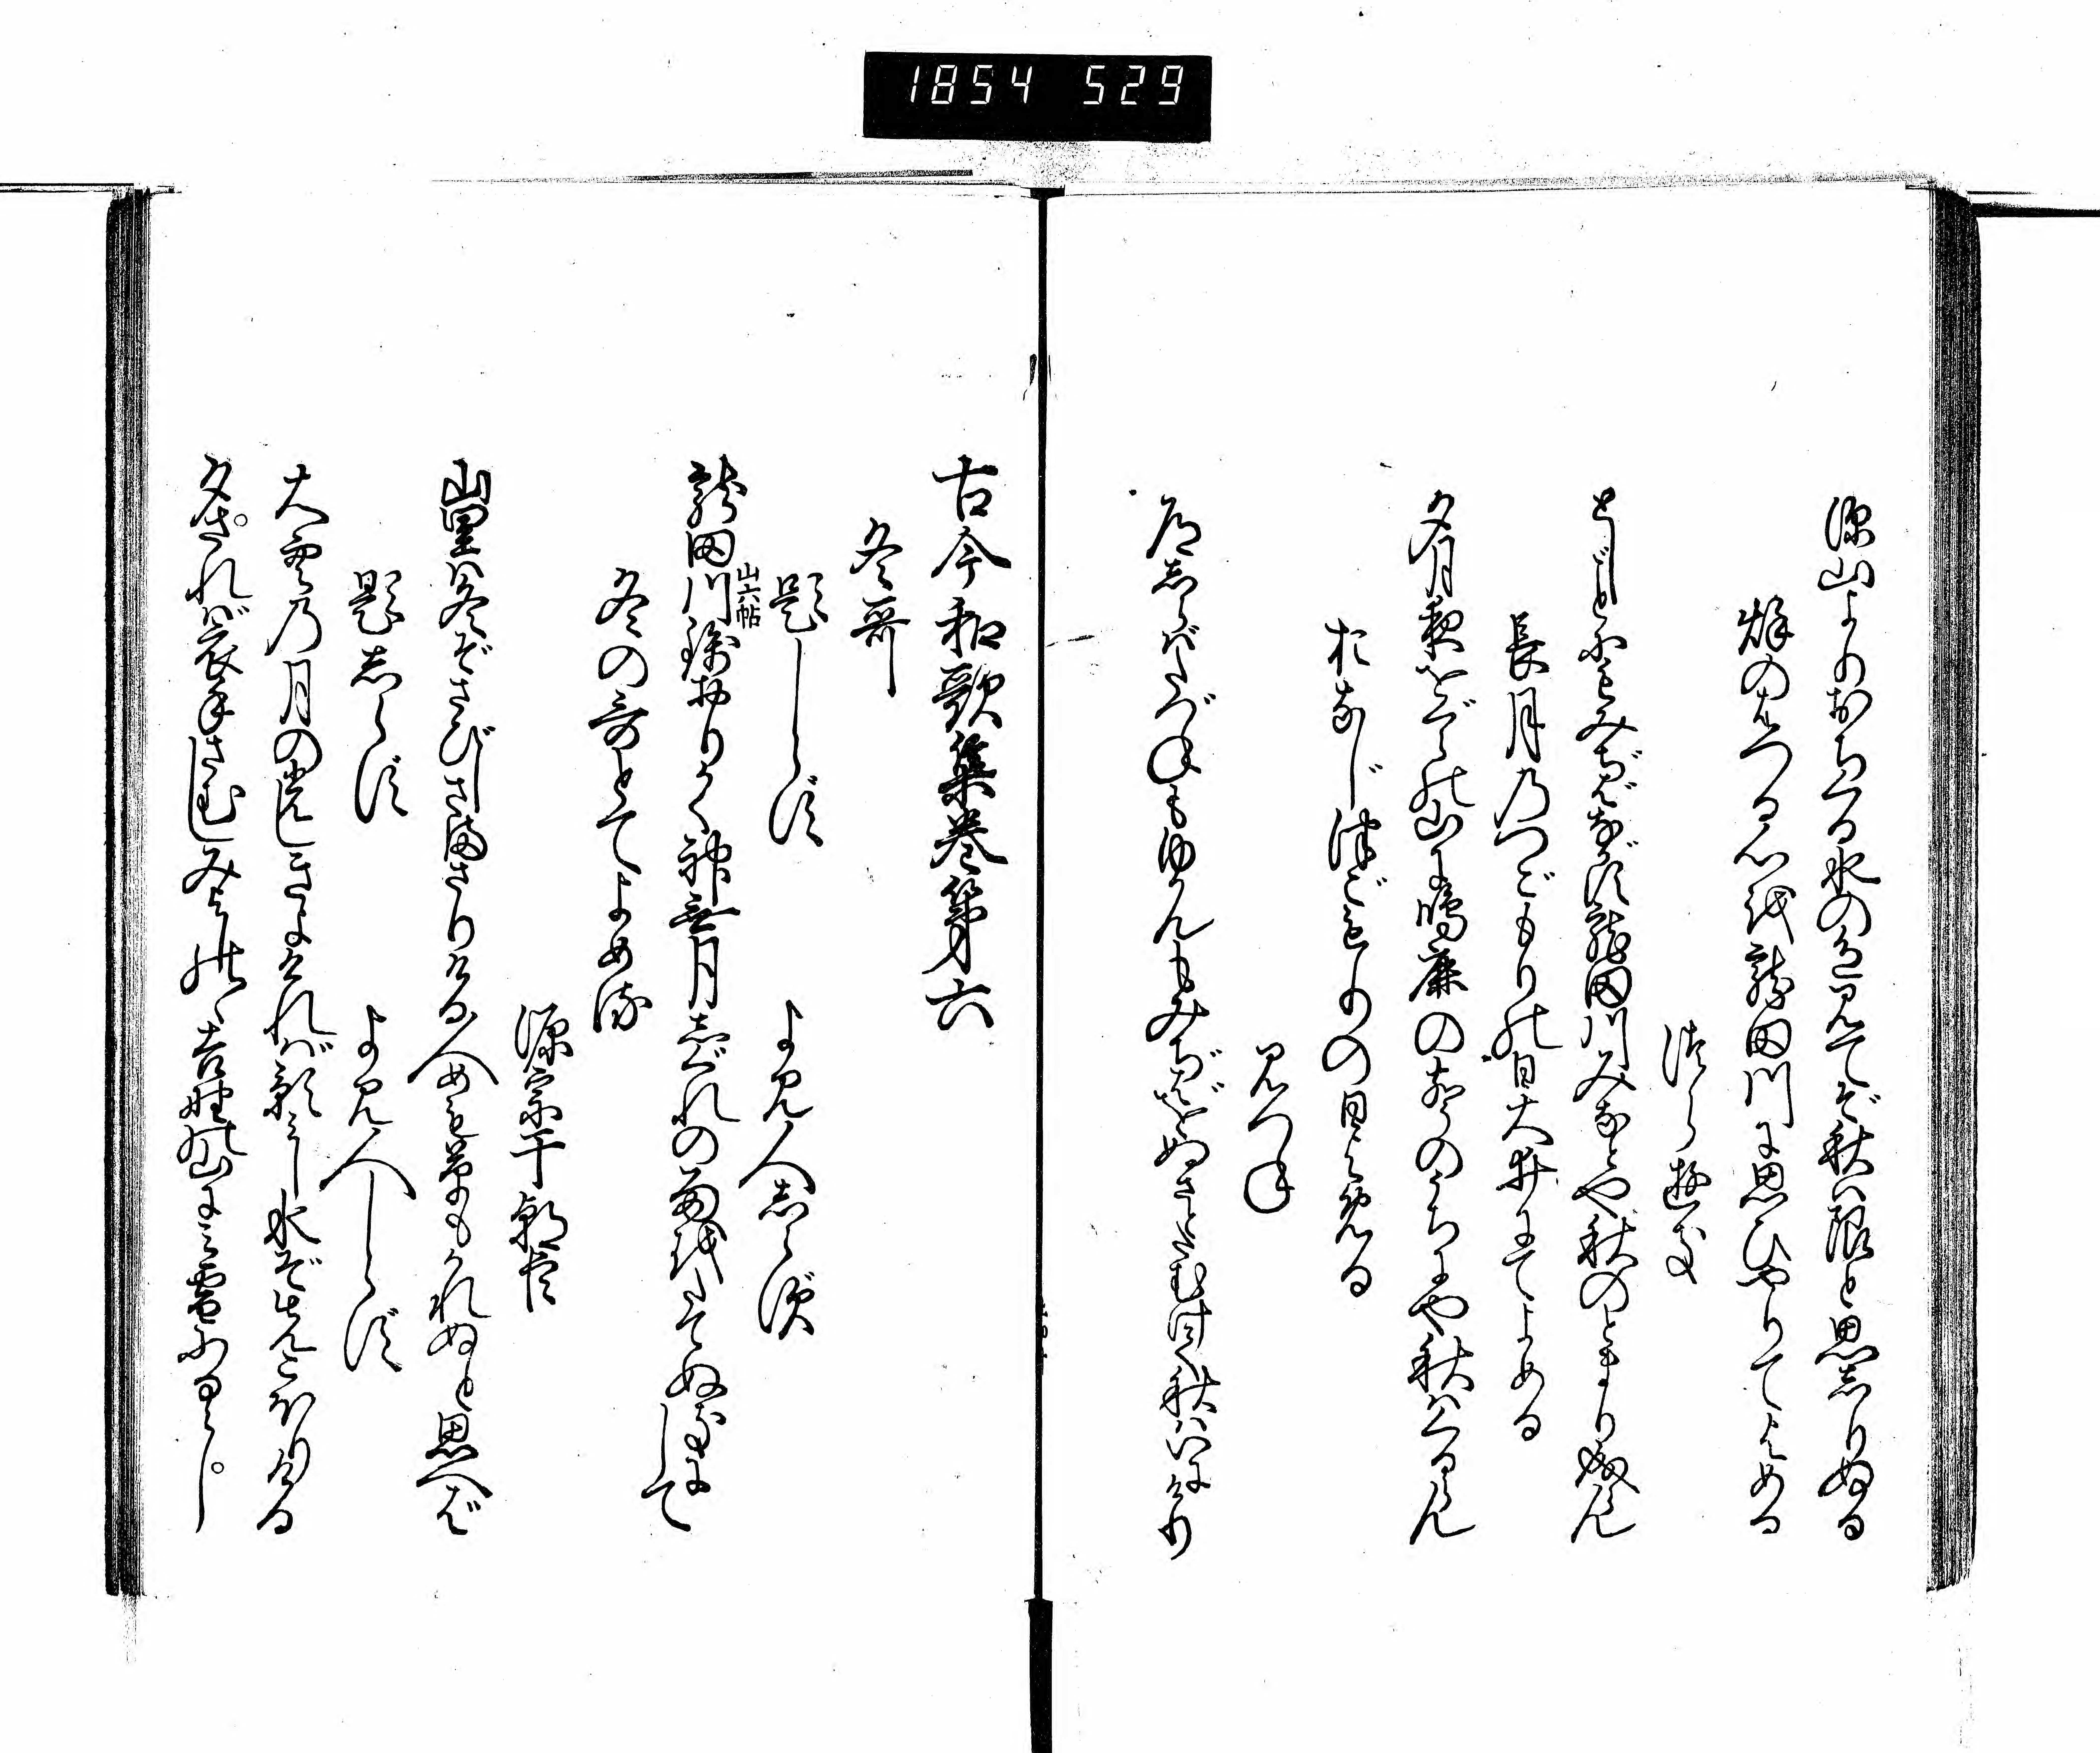 1854 529
深山よりおちくる水の色見てぞ秋は限と思しりぬる
秌のはつる心を龍田川に思ひやりてよめる
つらゆき
としごとにもみぢばながす龍田川みなとや秋のとまり成らん
長月のつごもりの日大井にてよめる
夕月夜をぐらの山に鳴鹿のこゑのうちにや秋はくるらん
おなじつごもりの日よめる
みつね
道しらばたづねもゆかんもみぢばをぬさとたむけて秋はいにけり
古今和歌集巻第六
冬哥
題しらず
よみ人しらず
龍田川錦おりかく神無月しぐれの雨をたてぬきにして
山六帖
冬の哥とてよめる
源宗于朝臣
山里は冬ぞさびしさまさりける人めも草もかれぬと思へば
題しらず
よみ人しらず
大空の月の光しきよければ影みし水ぞまづこほりける
夕されば衣手さむしみよしのゝ吉野の山にみ雪ふるらし